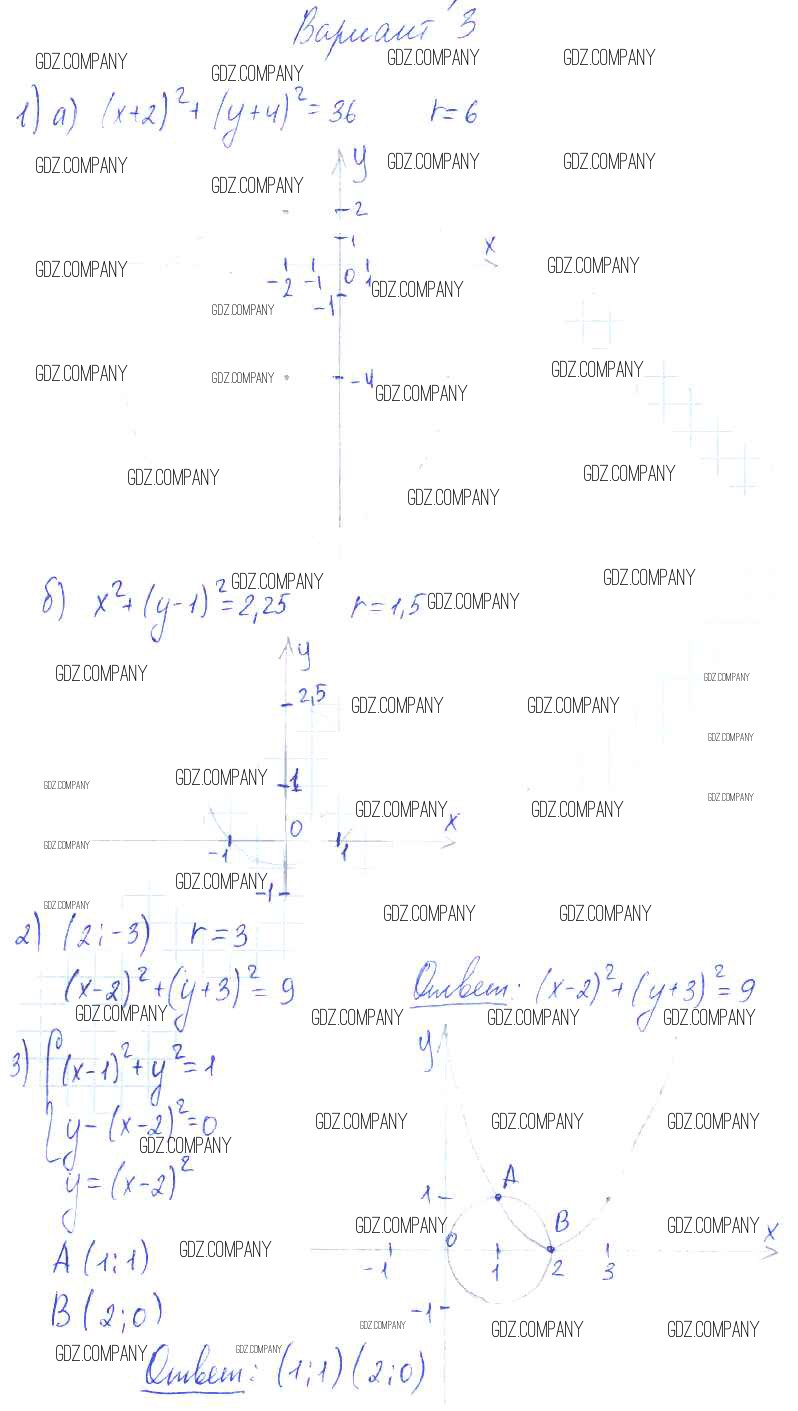 Вариант 3
GDZ.COMPANY GDZ.COMPANY GDZ.COMPANY GDZ.COMPANY
1) а) (x+2)²+(y+4)²=36 r=6
GDZ.COMPANY GDZ.COMPANY GDZ.COMPANY GDZ.COMPANY
y
2
1
x
GDZ.COMPANY -2 -1 0 1 GDZ.COMPANY GDZ.COMPANY
GDZ.COMPANY -1
GDZ.COMPANY GDZ.COMPANY -4 GDZ.COMPANY GDZ.COMPANY
GDZ.COMPANY GDZ.COMPANY GDZ.COMPANY
GDZ.COMPANY GDZ.COMPANY
б) x²+(y-1)²=2,25 r=1,5 GDZ.COMPANY
y
GDZ.COMPANY GDZ.COMPANY
2,5 GDZ.COMPANY GDZ.COMPANY
GDZ.COMPANY
GDZ.COMPANY GDZ.COMPANY 1 GDZ.COMPANY
GDZ.COMPANY GDZ.COMPANY
0 x
GDZ.COMPANY -1 1
GDZ.COMPANY -1
GDZ.COMPANY GDZ.COMPANY GDZ.COMPANY
2) (2;-3) r=3
(x-2)²+(y+3)²=9 Ответ: (x-2)²+(y+3)²=9
GDZ.COMPANY GDZ.COMPANY GDZ.COMPANY GDZ.COMPANY
3) {(x-1)²+y²=1
y
y-(x-2)²=0
GDZ.COMPANY GDZ.COMPANY GDZ.COMPANY GDZ.COMPANY
y=(x-2)²
A
1
B
GDZ.COMPANY GDZ.COMPANY
0 x
A(1;1) GDZ.COMPANY
-1 1 2 3
B(2;0)
-1
GDZ.COMPANY GDZ.COMPANY GDZ.COMPANY
GDZ.COMPANY GDZ.COMPANY
Ответ: (1;1) (2;0)